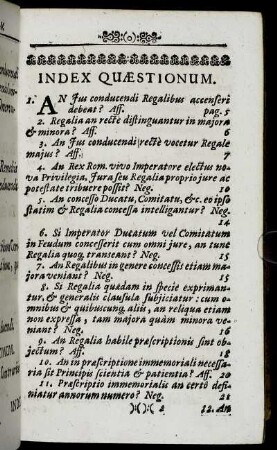 INDEX QUÆSTIONUM.
1. AN Jus conducendi Regalibus accenseri
debeat? Aff. pag. 5
2. Regalia an rectè distinguantur in majora
& minora? Aff. 6
3. An Jus conducendi rectè vocetur Regale
majus? Aff. 7
4. An Rex Rom. vivo Imperatore electus no-
va Privilegia, Jura seu Regalia proprio jure ac
potestate tribuere possit? Neg. 10
5. An concesso Ducatu, Comitatu, &c. eo ipso
statim & Regalia concessa intelligantur? Neg.
14
6. Si Imperator Ducatum vel Comitatum
in Feudum concesserit cum omni jure, an tunc
Regalia quoq; transeant? Neg. 15
7. An Regalibus in genere concessis etiam ma-
jora veniant? Neg. 15
8. Si Regalia quædam in specie expriman-
tur, & generalis clausula subjiciatur: cum om-
nibus & quibuscunq; aliis, an reliqua etiam
non expressa, tam majora quàm minora ve-
niant? Neg. 16
9. An Regalia habile præscriptionis sint ob-
jectum? Aff. 18
10. An in præscriptione immemoriali necessa-
ria sit Principis scientia & patientia? Aff. 20
11. Præscriptio immemorialis an certò defi-
niatur annorum numero? Neg. 21
2 12. An